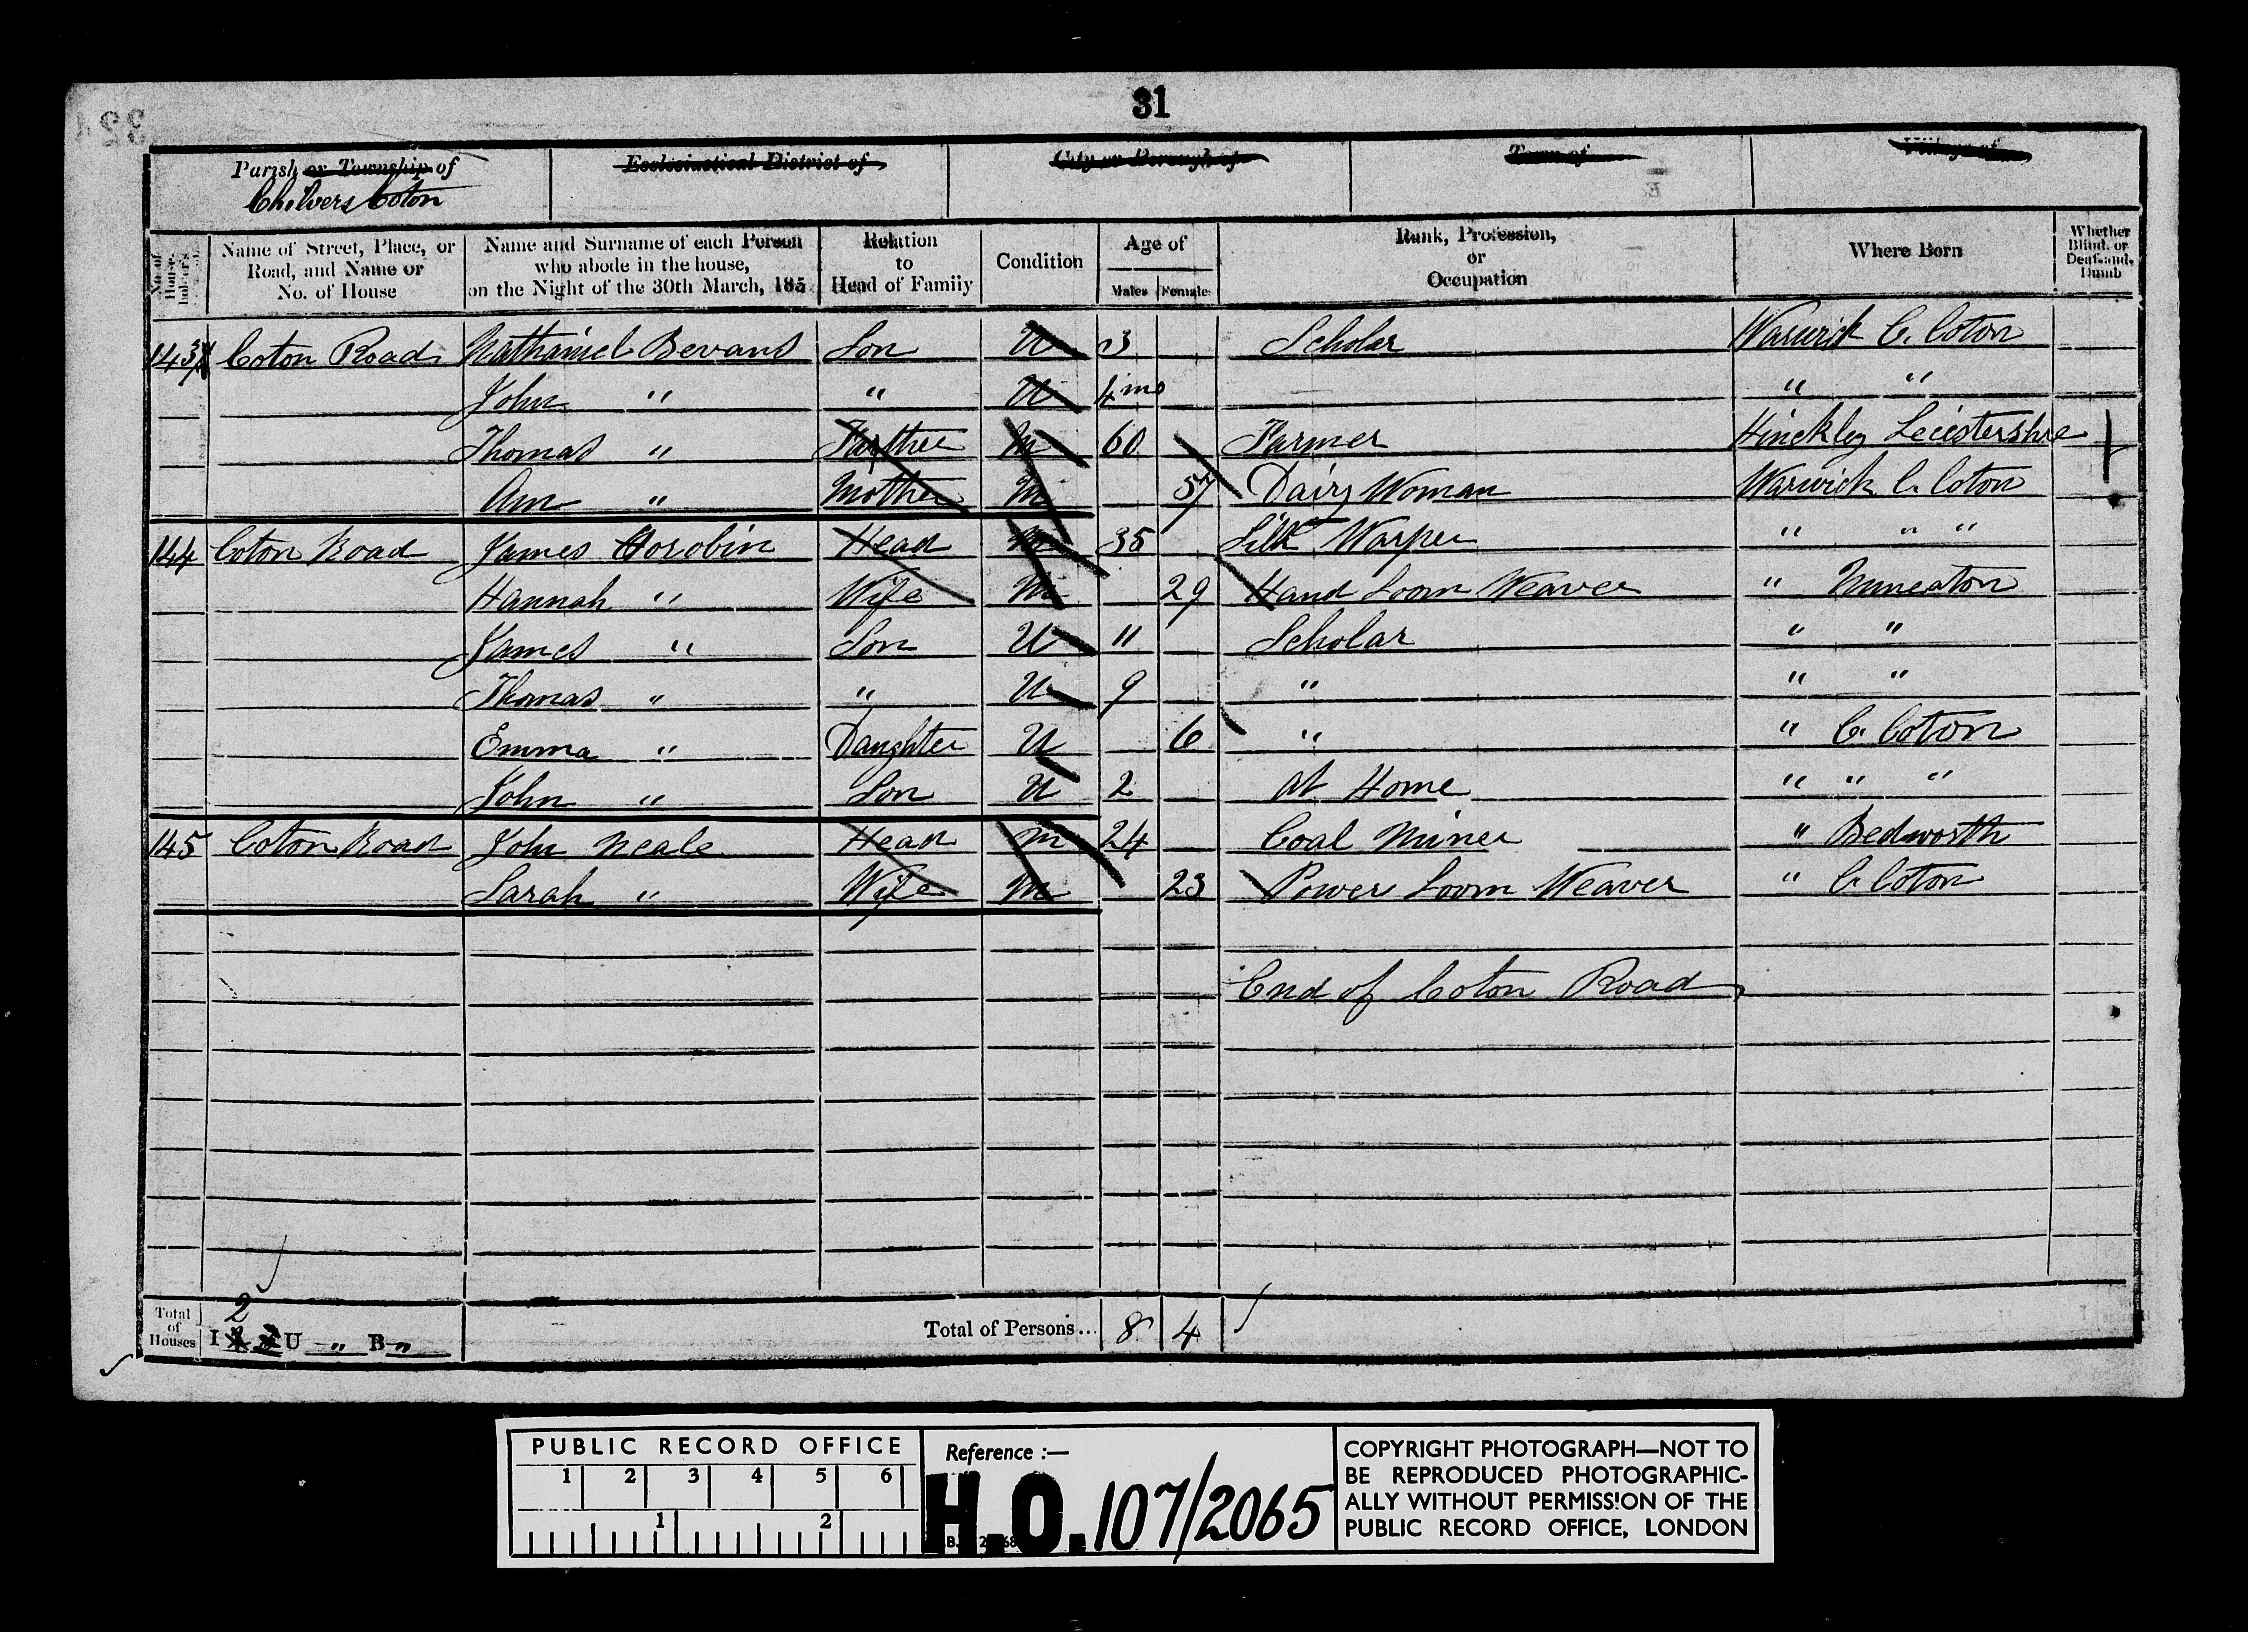 31
Parish or Township of
Chilvers Coton
Ecclesiastical District of
City or Borough of
Town of
Village of
No. of House-holder's
Name of Street, Place, or Road, and Name or No. of House
Name and Surname of each Person who abode in the house, on the Night of the 30th March, 185
Relation to Head of Family
Condition
Age of
Males
Females
Rank, Profession, or Occupation
Where Born
Whether Blind, or Deaf-and-Dumb
143 Coton Road Nathaniel Bevans Son U 3 Scholar Warwick C. Coton
John " " U 4 mo " "
Thomas " Father M 60 Farmer Hinckley Leicestershire
Ann " Mother M 57 Dairy Woman Warwick C. Coton
144 Coton Road James Horobin Head M 35 Silk Warper " " "
Hannah " Wife M 29 Hand Loom Weaver " Nuneaton
James " Son U 11 Scholar " "
Thomas " " U 9 " " "
Emma " Daughter U 6 " " C. Coton
John " Son U 2 At Home " " "
145 Coton Road John Neale Head M 24 Coal Miner " Bedworth
Sarah " Wife M 23 Power Loom Weaver " C. Coton
End of Coton Road
2
Total of Houses I U " B "
Total of Persons... 8 4
PUBLIC RECORD OFFICE
1 2 3 4 5 6
1 2
Reference :—
H.O. 107/2065
COPYRIGHT PHOTOGRAPH—NOT TO
BE REPRODUCED PHOTOGRAPHIC-
ALLY WITHOUT PERMISSION OF THE
PUBLIC RECORD OFFICE, LONDON